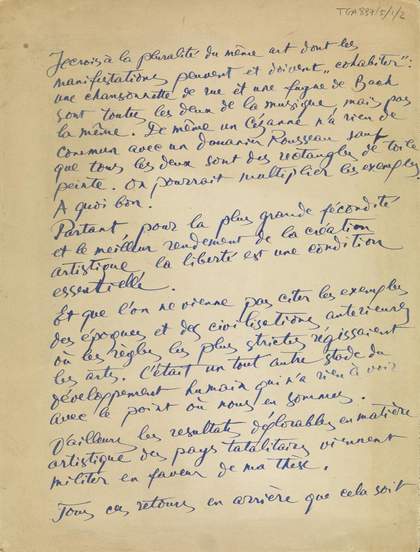 TGA 897/5/1/2
Je crois à la pluralité du même art dont les
manifestations peuvent et doivent „cohabiter":
une chansonnette de rue et une fugue de Bach
sont toutes les deux de la musique, mais pas
la même. De même un Cézanne n'a rien de
commun avec un douanier Rousseau sauf
que tous les deux sont des rectangles de toile
peinte. On pourrait multiplier les exemples
A quoi bon.
Partant pour la plus grande fécondité
et le meilleur rendement de la création
artistique la liberté est une condition
essentielle.
Et que l'on ne vienne pas citer les exemples
des époques et des civilisations anterieures
où les règles les plus strictes régissaient
les arts. C'était un tout autre stade du
développement humain qui n'a rien à voir
avec le point où nous en sommes.
D'ailleurs les resultats déplorables en matière
artistique des pays totalitaires viennent
militer en faveur de ma thèse.
Tous ces retours en arrière que cela soit